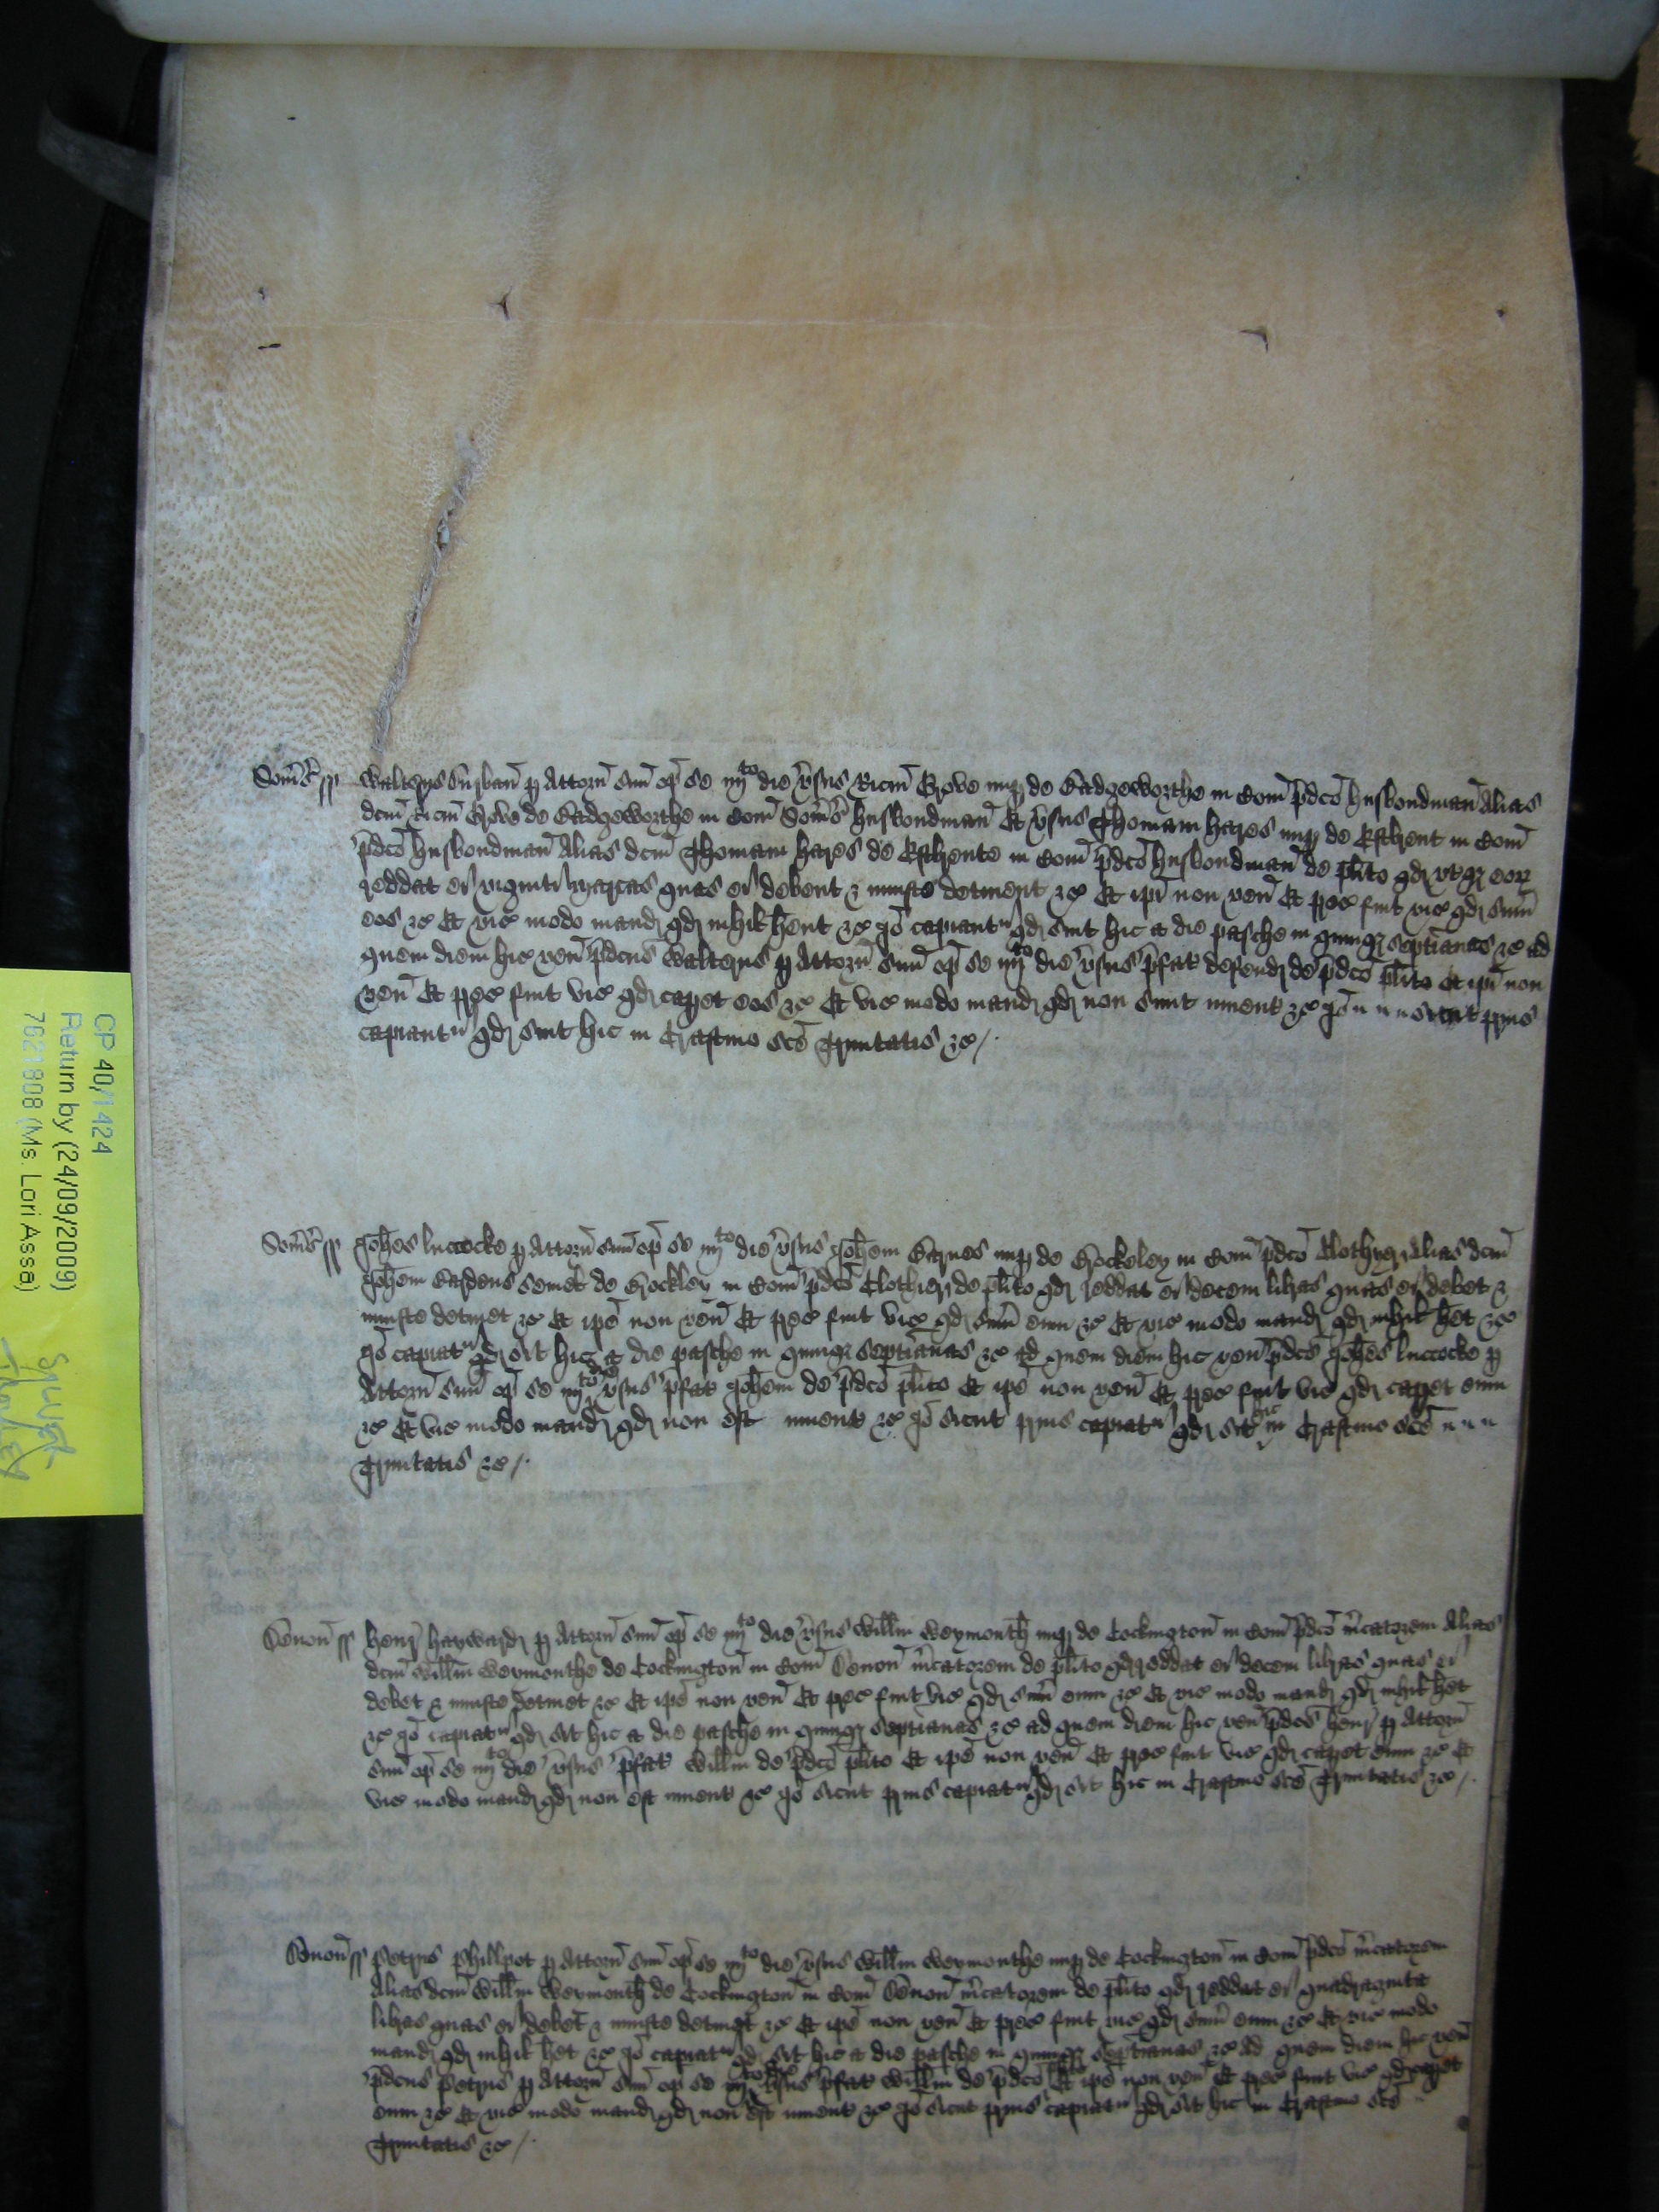 Som̄s̄ ss Walterus Survan̄ p Attorn̄ suū op̄ se iiij to die v̄sus Ricm̄ Crove nup de Badgeworthe in Com̄ p̄dco husbondman Alias
dcm̄ Ricm̄ Crove de Badgeworthe in Com̄ Som̄s̄ husbondman Et v̄sus Thomam hares nup de Estbrent in Com̄
p̄dco husbondman Alias dcm̄ Thomam hares de Estbrente in Com̄ p̄dco husbondman de pl̄ito qd utq eoꝝ
reddat ei viginti marcas quas ei debent & iniuste detinent &c Et ip̄i non ven̄ Et prec̄ fuit vic̄ qd sum̄
eos &c Et vic̄ modo mand qd nichil h̄ent &c Iō capiantr qd sint hic a die pasche in quinq septianas &c ad
quem diem hic ven̄ p̄dcus Walterus p Attorn̄ suū op̄ se iiij to die v̄sus p̄fat defend de p̄dco pl̄ito et ip̄i non
ven̄ Et prec̄ fuit vic̄ qd caperet eos &c Et vic̄ modo mand qd non sunt invent &c Iō sicut prius
capiantr qd sint hic in Crastino sce Trinitatis &c /.
Som̄s̄ ss Joh̄es luccocke p Attorn̄ suū op̄ se iiij to die v̄sus Joh̄em Barnes nup de Brockeley in Com̄ p̄dco Clothyer Alias dcm̄
Joh̄em de Brockley in Com̄ p̄dco Clothier de pl̄ito qd reddat ei decem libras quas ei debet &
iniuste detinet &c Et ip̄e non ven̄ Et prec̄ fuit vic̄ qd sum̄ eum &c Et vic̄ modo mand qd nichil h̄et &c
Iō capiatr qd sit hic a die pasche in quinq septianas &c ad quem diem hic ven̄ p̄dcus Joh̄es luccocke p
Attorn̄ suū op̄ se iiij to die v̄sus p̄fat Joh̄em de p̄dco pl̄ito Et ip̄e non ven̄ Et prec̄ fuit vic̄ qd caperet eum
&c Et vic̄ modo mand qd non est invent &c Iō sicut prius capiatr qd sit hic in Crastino sce
Trinitatis &c /.
Devon̄ ss henr̄ hayward p Attorn̄ suū op̄ se iiij to die v̄sus Will̄m Weymouth nup de Cockington̄ in Com̄ p̄dco m̄catorem Alias
dcm̄ Will̄m Weymouthe de Cockington̄ in Com̄ Devon̄ m̄catorem de pl̄ito qd reddat ei decem libras quas ei
debet & iniuste detinet &c Et ip̄e non ven̄ Et prec̄ fuit vic̄ qd sum̄ eum &c Et vic̄ modo mand qd nichil h̄et
&c Iō capiatr qd sit hic a die pasche in quinq septianas &c ad quem diem hic ven̄ p̄dcus henr̄ p Attorn̄
suū op̄ se iiij to die v̄sus p̄fat Will̄m de p̄dco pl̄ito Et ip̄e non ven̄ Et prec̄ fuit vic̄ qd caperet eum &c Et
vic̄ modo mand qd non est invent &c Iō sicut prius capiatr qd sit hic in Crastino sce Trinitatis &c /.
Devon̄ ss Petrus Phillpot p Attorn̄ suū op̄ se iiij to die v̄sus Will̄m Weymouthe nup de Cockington̄ in Com̄ p̄dco m̄catorem
Alias dcm̄ Will̄m Weymouth de Cockington̄ in Com̄ Devon̄ m̄catorem de pl̄ito qd reddat ei quadraginta
libras quas ei debet & iniuste detinet &c Et ip̄e non ven̄ Et prec̄ fuit vic̄ qd sum̄ eum &c Et vic̄ modo
mand qd nichil h̄et &c Iō capiatr qd sit hic a die pasche in quinq septianas &c ad quem diem hic ven̄
p̄dcus Petrus p Attorn̄ suū op̄ se iiij to die v̄sus p̄fat Will̄m de p̄dco Et ip̄e non ven̄ Et prec̄ fuit vic̄ qd caperet
eum &c Et vic̄ modo mand qd non est invent &c Iō sicut prius capiatr qd sit hic in Crastino sce
Trinitatis &c /.
CP 40/1424
Return by (24/09/2009)
7621808 (Ms. Lori Assa)